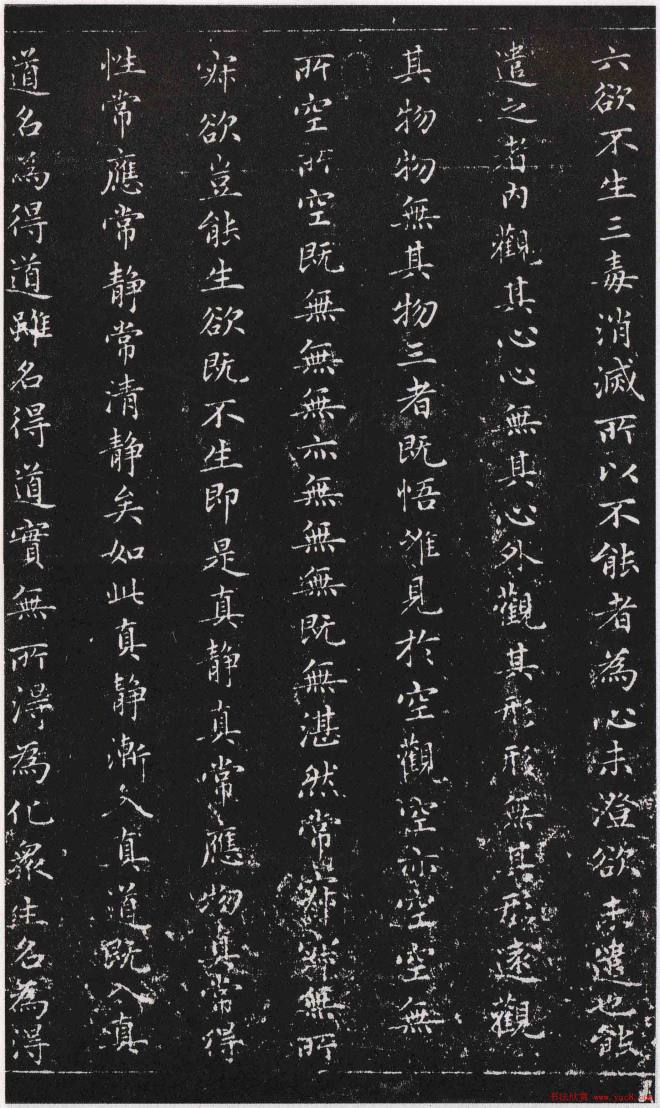 六欲不生三毒消滅所以不能者為心未澄欲未遣也能
遣之者内觀其心心無其心外觀其形形無其形遠觀
其物物無其物三者既悟唯見於空觀空亦空空無
所空所空既無無無亦無無無既無湛然常寂寂無所
寂欲豈能生欲既不生即是真静真常應物真常得
性常應常静常清静矣如此真静漸入真道既入真
道名為得道雖名得道實無所得為化衆生名為得
书法欣赏 www.yac8.com